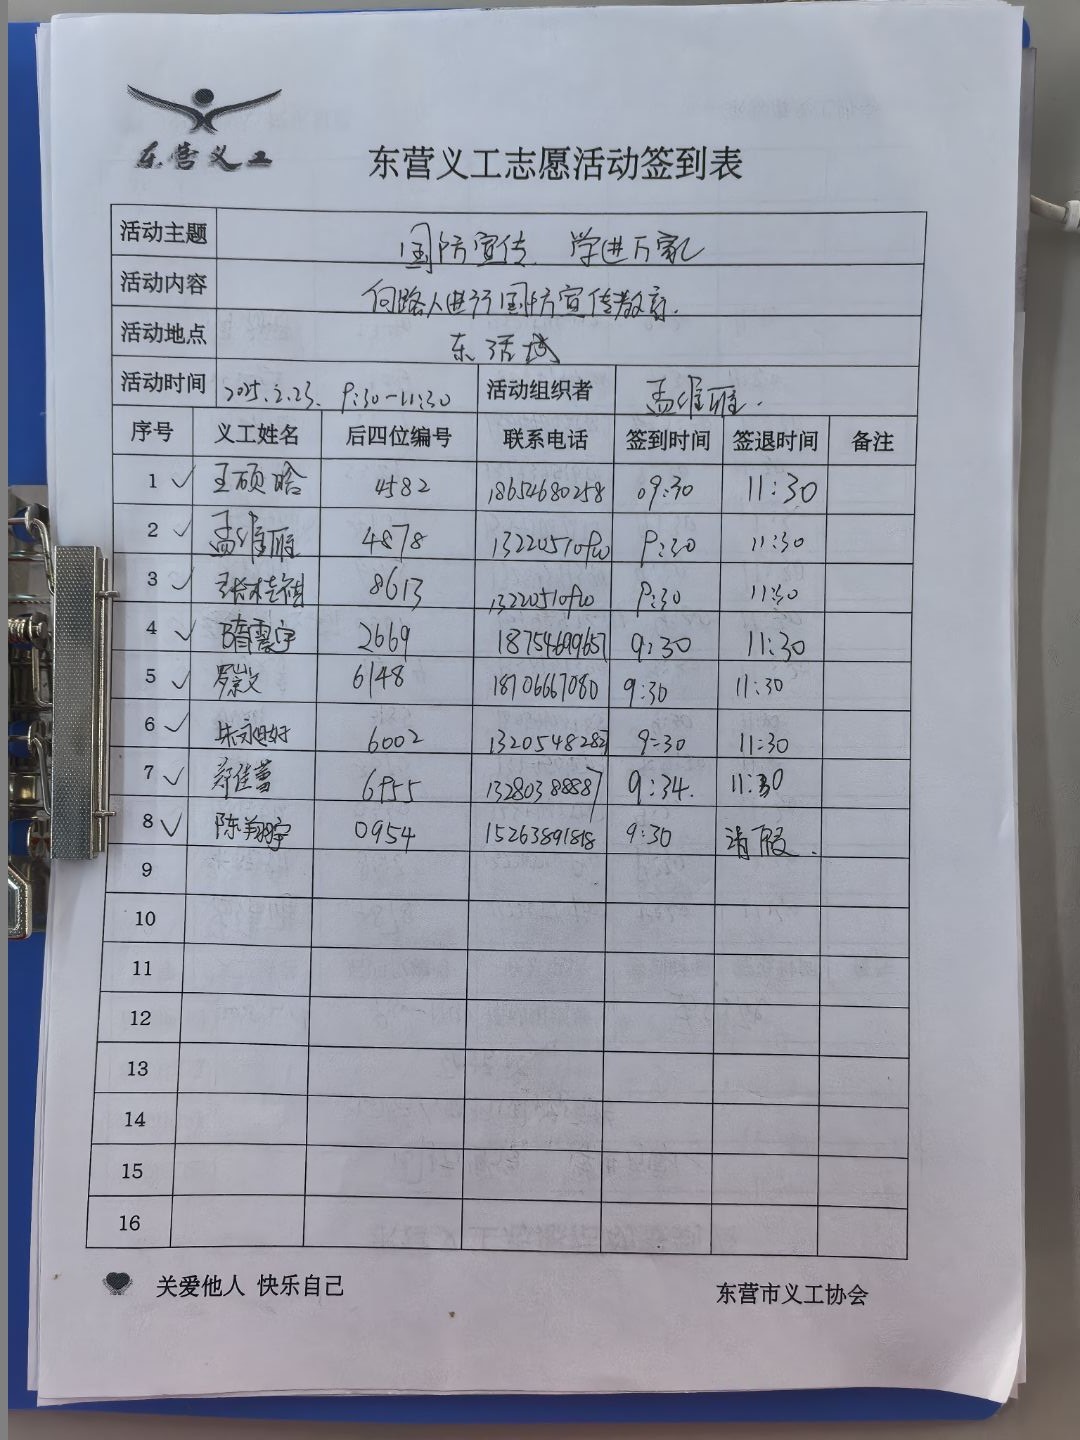 东营义工
东营义工志愿活动签到表
活动主题 国防宣传 学进万家
活动内容 向路人进行国防宣传教育.
活动地点 东活城
活动时间 2025.2.23. 9:30-11:30 活动组织者 孟维雁.
序号 义工姓名 后四位编号 联系电话 签到时间 签退时间 备注
1 ✓ 王硕晗 4582 18654680258 09:30 11:30
2 ✓ 孟维雁 4878 9:30 11:30
3 ✓ 8613 9:30 11:30
4 ✓ 2669 18754699657 9:30 11:30
5 ✓ 罗崇文 6148 18706667080 9:30 11:30
6 ✓ 6002 13205482827 9:30 11:30
7 ✓ 郑佳蕾 6955 13280388887 9:34. 11:30
8 ✓ 陈翔宇 0954 15263891818 9:30 请假.
9
10
11
12
13
14
15
16
关爱他人 快乐自己 东营市义工协会